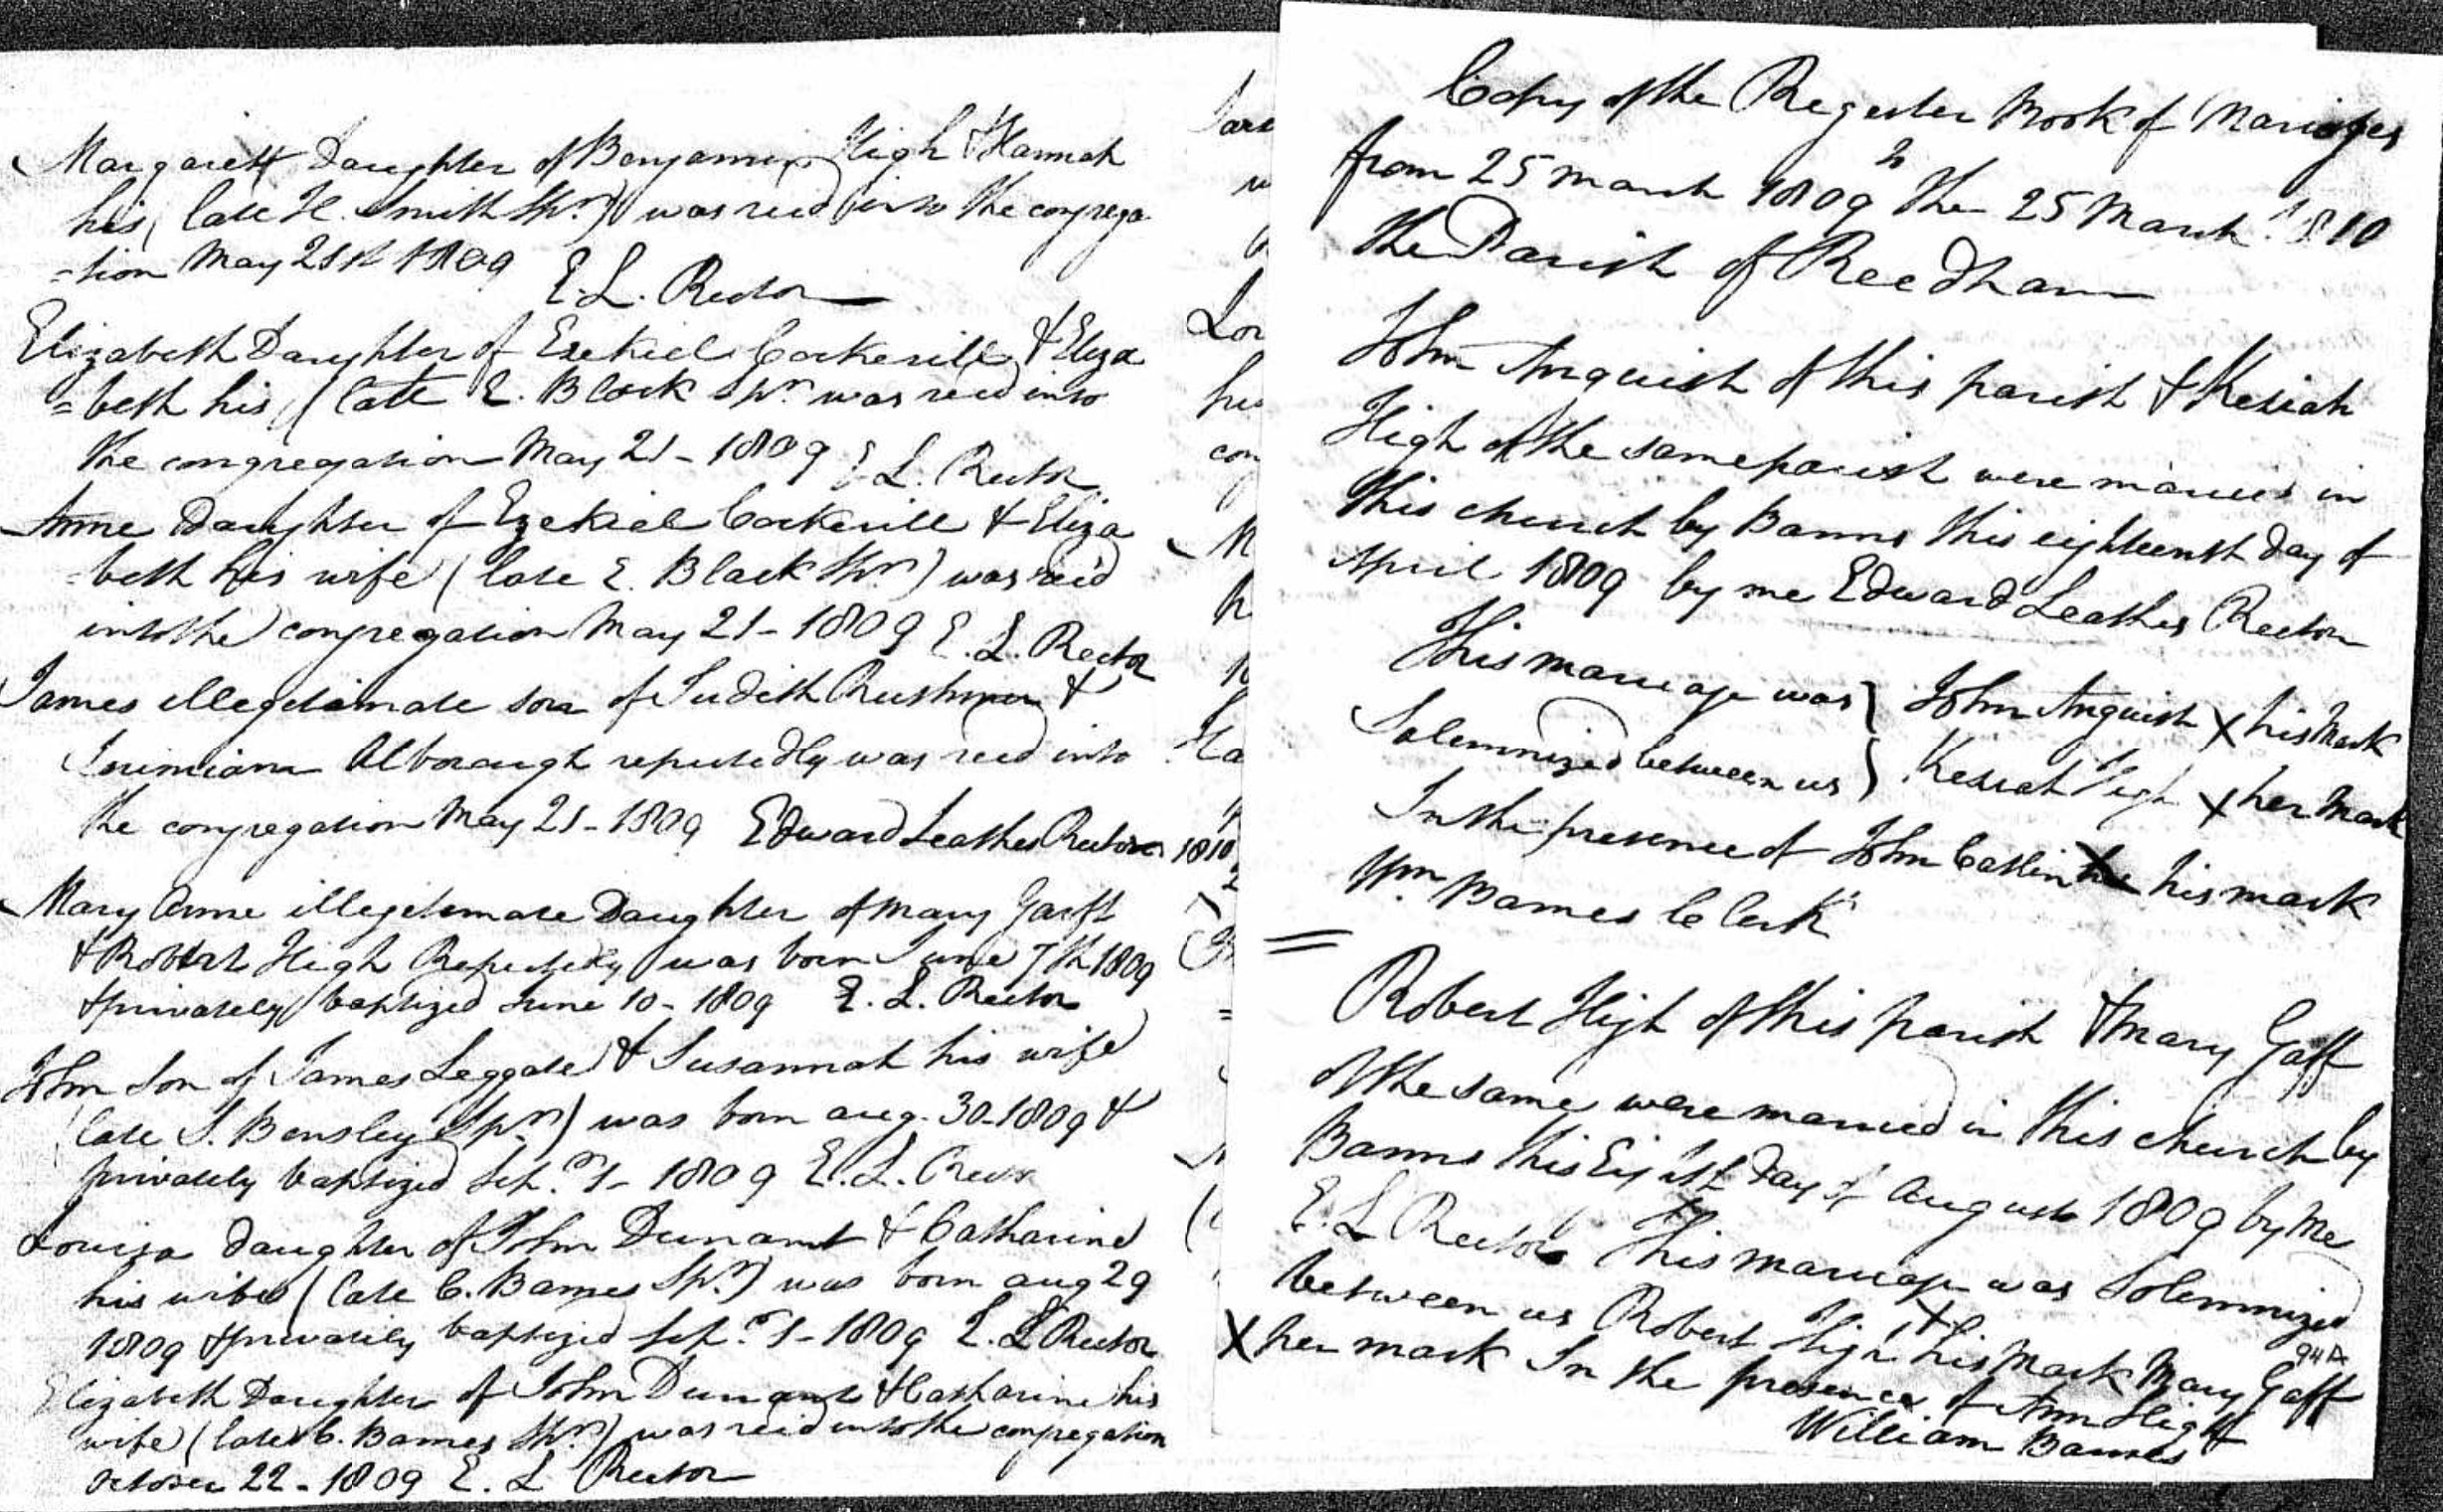 Margarett Daughter of Benjamin High & Hannah
his (late H. Smith Spr) was recd into the congrega
=tion May 21st 1809
E. L. Rector
Elizabeth Daughter of Ezekiel Cockerill & Eliza
=beth his (late E. Black Spr was recd into
the congregation May 21 - 1809 E L. Rector
Anne Daughter of Ezekiel Cockerill & Eliza
=beth his wife (late E. Black Spr) was recd
into the congregation May 21 - 1809 E. L. Rector
James illegetimate son of Judith &
Alborough reputedly was recd into
the congregation May 21 - 1809 Edward Leathes Rector
Mary Anne illegetemate Daughter of Mary Gaff
& Robert High Reputedly was born June 7th 1809
& privately baptized June 10 - 1809 E. L. Rector
John Son of James Leggate & Susannah his wife
(late S. Bensley Spr) was born aug. 30 - 1809 &
privately baptized Sep.r 1 - 1809 E. L. Rector
Louisa daughter of John Dunant & Catharine
his wife (late C. Barnes Spr) was born aug 29
1809 & privately baptized Sep.r 1 - 1809 E. L Rector
Elizabeth Daughter of John Dunant & Catharine his
wife (late C. Barnes Spr) was recd into the congregation
october 22 - 1809 E. L Rector
1810
Copy of the Register Book of Mariages
from 25 march 1809 to the 25 March 1810
the Parish of Reedham
John Anguish of this parish & Keziah
High of the same parish were married in
this church by Banns this eighteenth day of
April 1809 by me Edward Leathes Rector
This marriage was } John Anguish X his Mark
Solemnized between us } Keziah High X her Mark
In the presence of John Catlin X his mark
Wm Barnes Clerk
=
Robert High of this parish & Mary Gaff
of the same were married in this church by
Banns this Eight day of August 1809 by me
E. L Rector This marriage was Solemnized
between us Robert High X his Mark Mary Gaff
94A
X her mark In the presence of Ann High
William Barnes